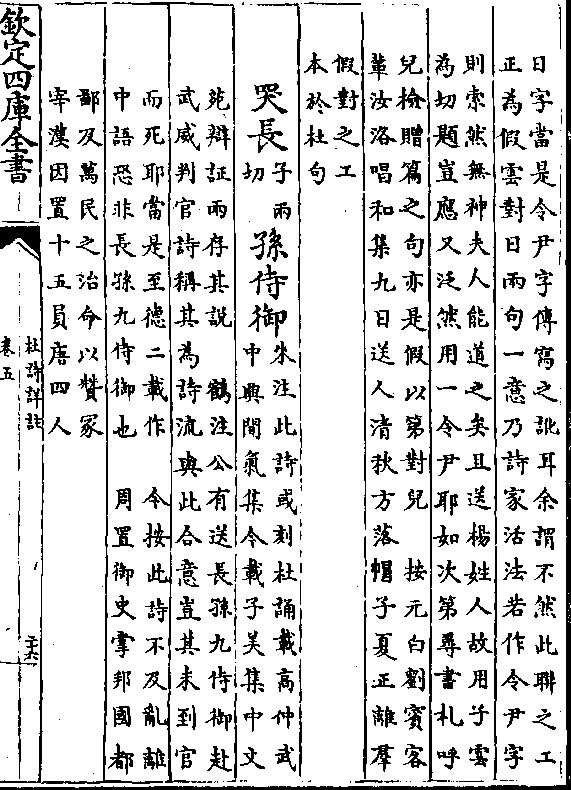 日字當是令尹字傳寫之訛耳余謂不然此聯之工
正為假雲對日兩句一意乃詩家活法若作令尹字
則索然無神夫人能道之矣且送楊姓人故用子雲
為切題豈應又泛然用一令尹耶如次第尋書札呼
兒檢贈篇之句亦是假以第對兒 按元白劉賓客
輩汝洛唱和集九日送人清秋方落帽子夏正離羣
假對之工
本於杜句
哭長子兩切孫侍御
朱注此詩或刻杜誦載高仲武
中興間氣集今載子美集中文
苑辯証兩存其說 鶴注公有送長孫九侍御赴
武威判官詩稱其為詩流與此合意豈其未到官
而死耶當是至德二載作 今按此詩不及亂離
中語恐非長孫九侍御也 周置御史掌邦國都
鄙及萬民之治命以贊冢
宰漢因置十五員唐四人
欽定四庫全書
杜詩詳註
卷五
二十六